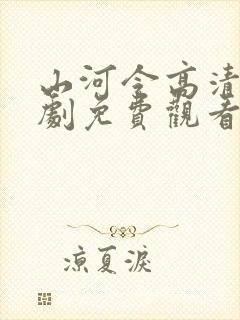 山河令高清
劇免費觀看
涼夏淚